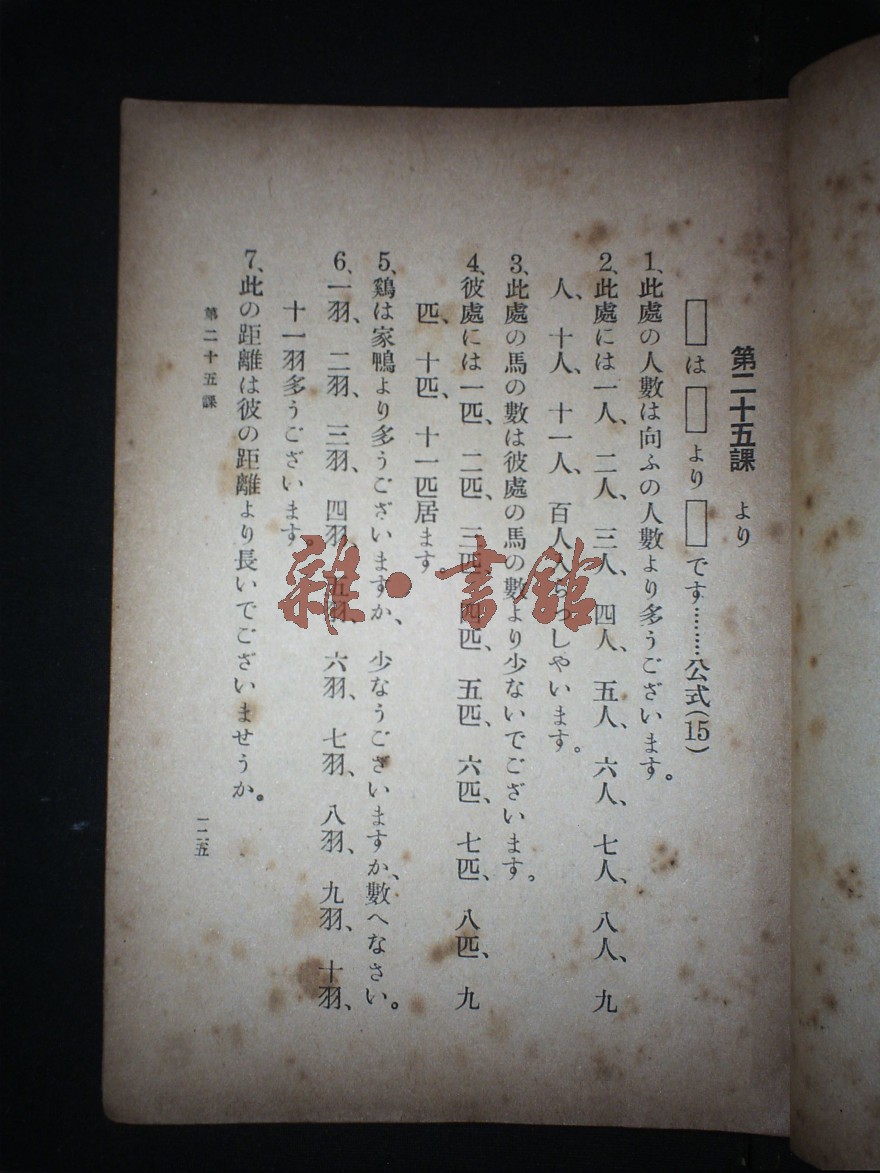 第二十五課　より
□は□より□です………公式(15)
1、此處の人數は向ふの人數より多うございます。
2、此處には一人、二人、三人、四人、五人、六人、七人、八人、九
人、十人、十一人、百人入らつしやいます。
3、此處の馬の數は彼處の馬の數より少ないでございます。
4、彼處には一匹、二匹、三匹、四匹、五匹、六匹、七匹、八匹、九
匹、十匹、十一匹居ます。
5、鷄は家鴨より多うございますか、少なうございますか、數へなさい。
6、一羽、二羽、三羽、四羽、五羽、六羽、七羽、八羽、九羽、十羽、
十一羽多うございます。
7、此の距離は彼の距離より長いでございませうか。
第二十五課
一二五
雜·書館